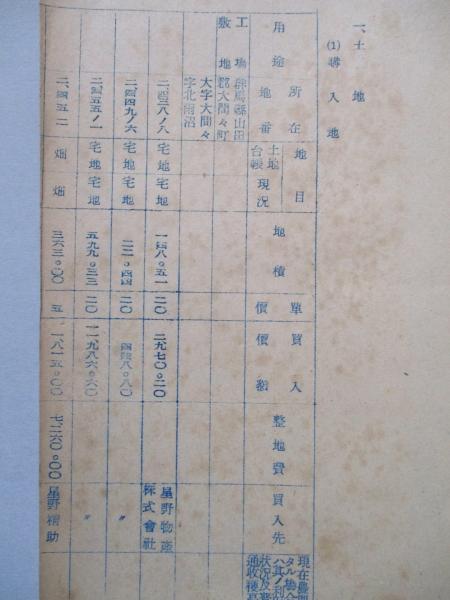 一、土地
(1) 購入地
用途 所在地番 地目 土地台帳 現況 地積 單價 買入價額 整地費 買入先
工場敷地 群馬縣山田郡大間々町
大字大間々
字北雨沼
宅地 宅地 一四八。五一 二〇 二、九七〇。二〇 星野物產株式會社
二、四四九ノ六 宅地 宅地 二二。四四 二〇 四四八。八〇 〃
二、四五五ノ一 宅地 宅地 五九九。三三 二〇 一一、九八六。六〇 〃
二、四五二 畑 畑 三六三。〇〇 五 一、八一五。〇〇 七、二六〇。〇〇 星野精助